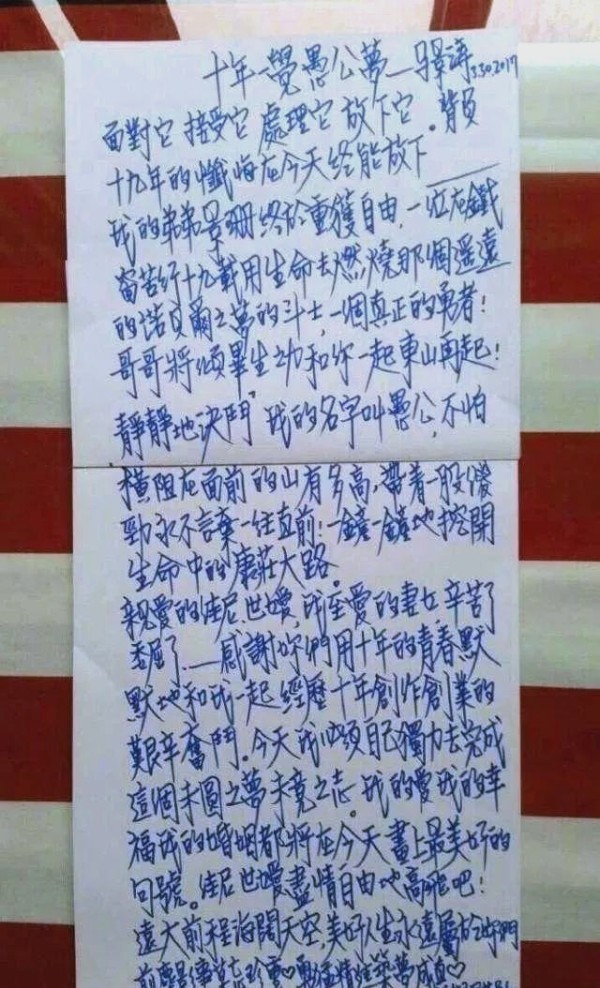 十年一覺愚公夢—景濤 3.30.2017
面對它 接受它 處理它 放下它。背負
十九年的懺悔在今天终能放下——
我的弟弟景珊終於重獲自由,一位在鐵
窗苦行十九載用生命去燃燒那個遥遠
的诺貝爾之夢的斗士,一個真正的勇者!
哥哥將傾畢生之力和你一起東山再起!
靜靜地決鬥,我的名字叫愚公,不怕
橫阻在面前的山有多高,帶着一股傻
勁永不言棄一往直前!一鏟一鏟地挖開
生命中的康莊大路。
親愛的佳尼,世嬡,我至愛的妻女,辛苦了
委屈了——感謝妳們用十年的青春默
默地和我一起經歷十年創作創業的
艱辛奮鬥。今天我必須自己獨力去完成
這個未圓之夢未竟之志。我的愛我的幸
福我的婚姻都將在今天畫上最美好的
句號。佳尼世嬡盡情自由地高飛吧!
遠大前程海闊天空,美好人生永遠屬於妳們
珍重♡勇猛精進築夢成真♡